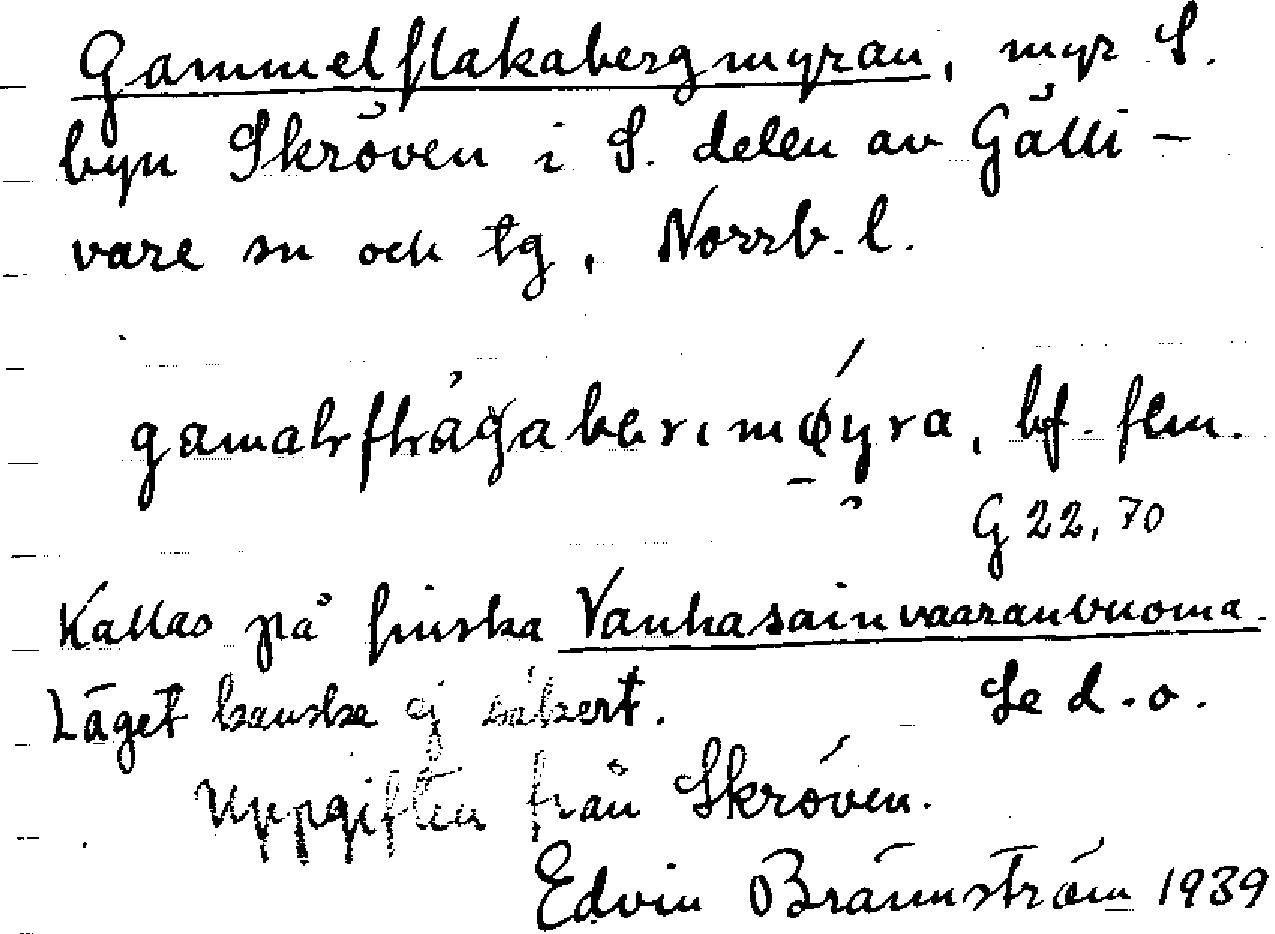 Gammelflakabergmyran, myr S.
byn Skröven i S. delen av Gälli-
vare sn och tg, Norrb. l.
bf. flm.
G 22, 70
Kallas på finska Vanhasainvaaranvuoma.
Läget kanske ej säkert. Se d.o.
Uppgiften från Skröven.
Edvin Brännström 1939